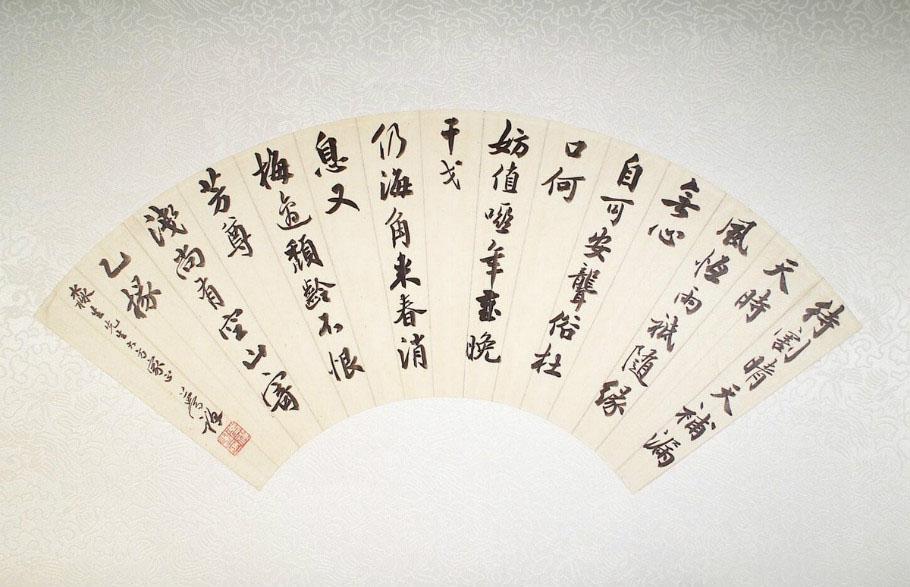 待割晴天補漏
天時
風恆雨祗隨緣
無心
自可安聾俗杜
口何
妨值啞年乖晚
干戈
仍海角來春消
息又
梅邊頹齡不恨
芳尊
淺尚有空山寄
乙緣
先生